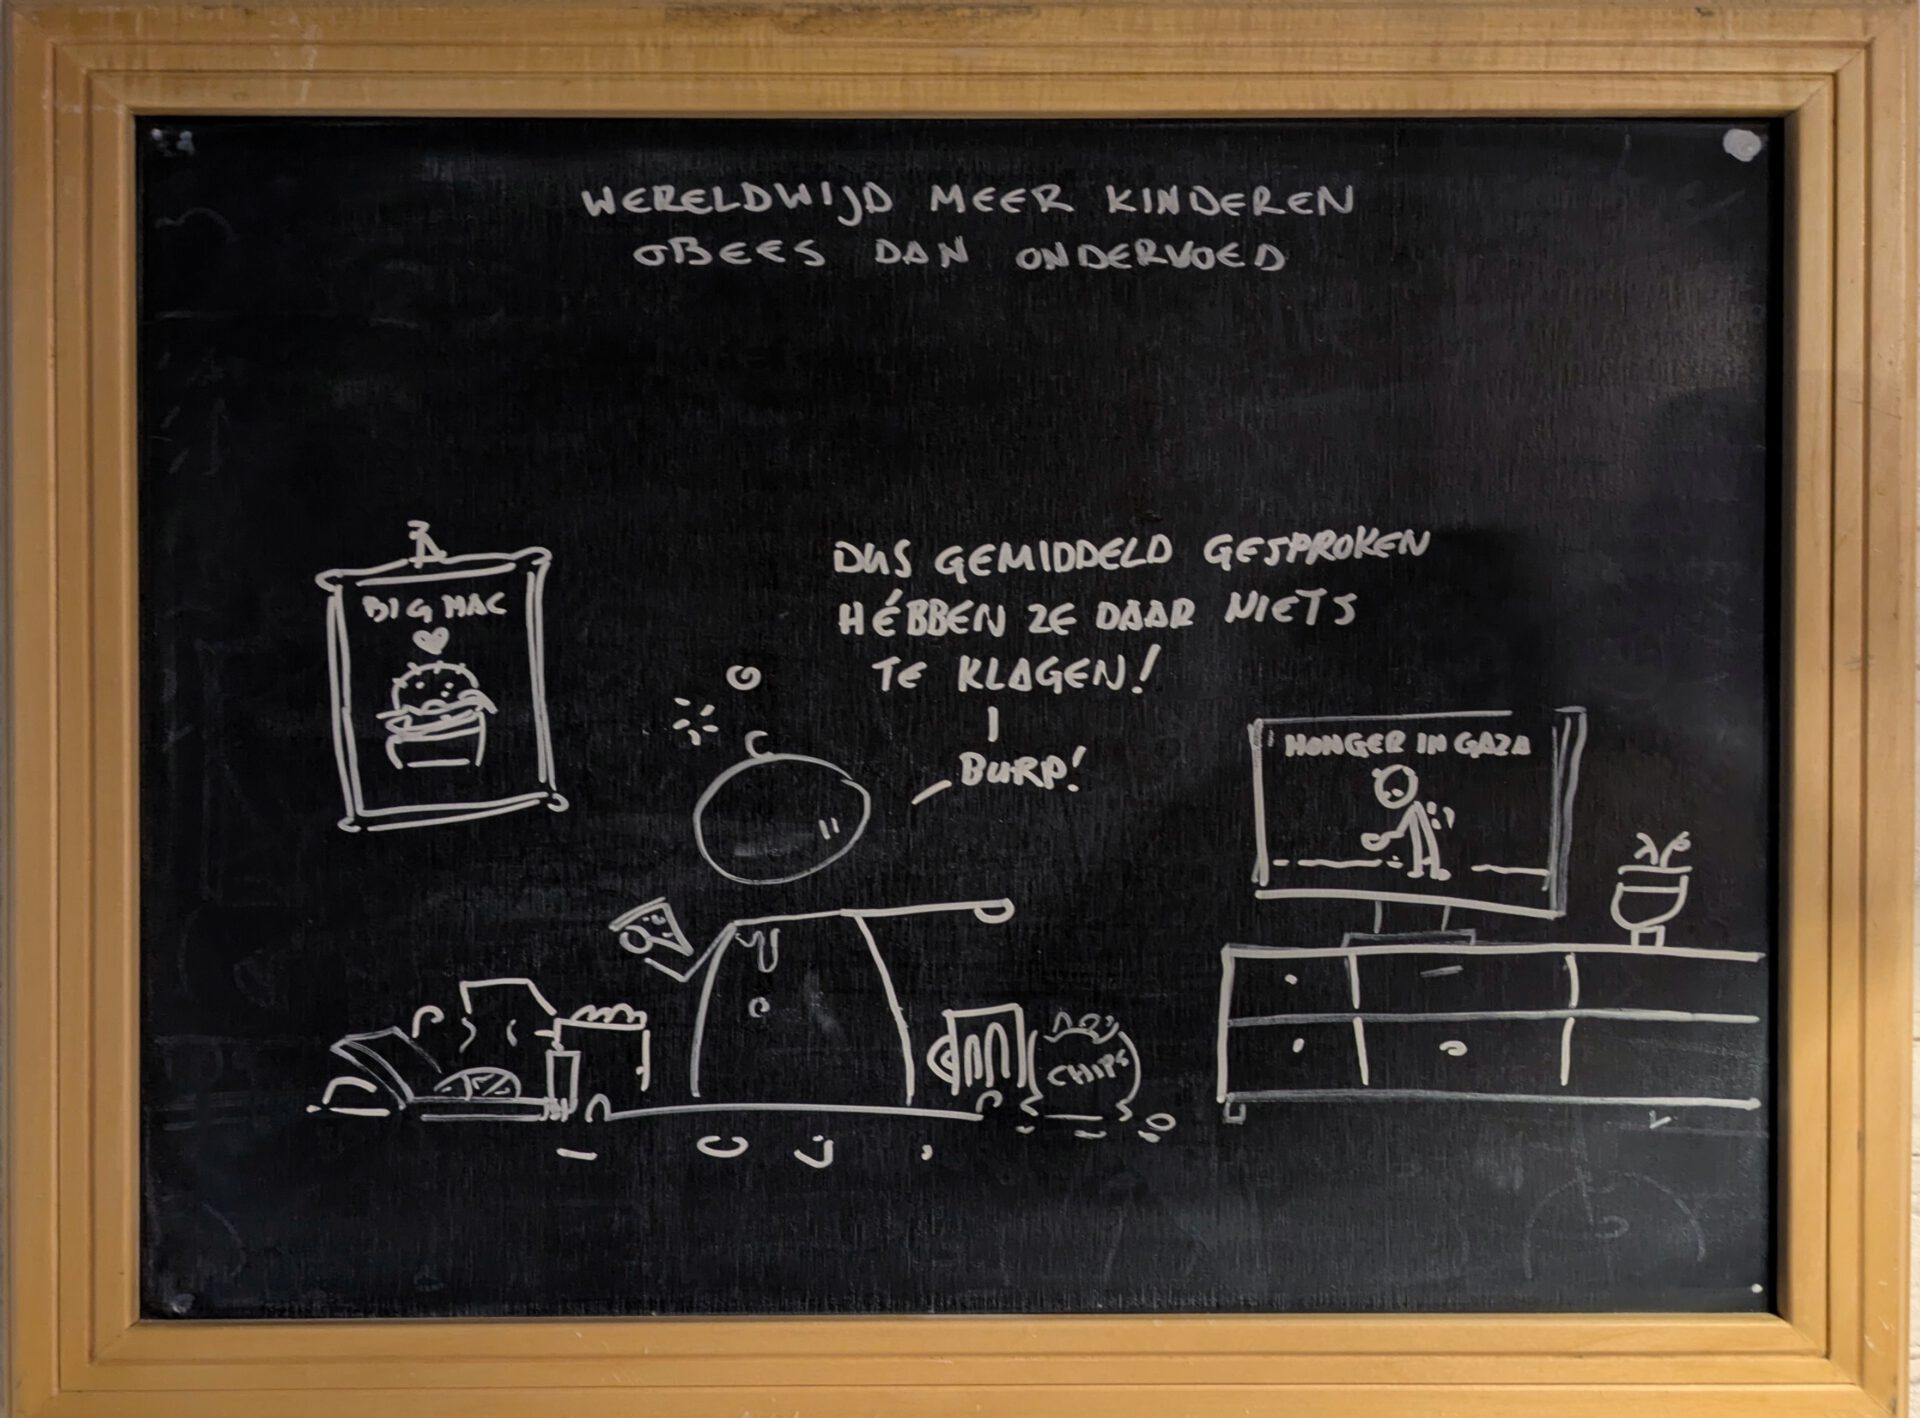 WERELDWIJD MEER KINDEREN
OBEES DAN ONDERVOED
DUS GEMIDDELD GESPROKEN
HÉBBEN ZE DAAR NIETS
TE KLAGEN!
BURP!
BIG MAC
HONGER IN GAZA
CHIPS